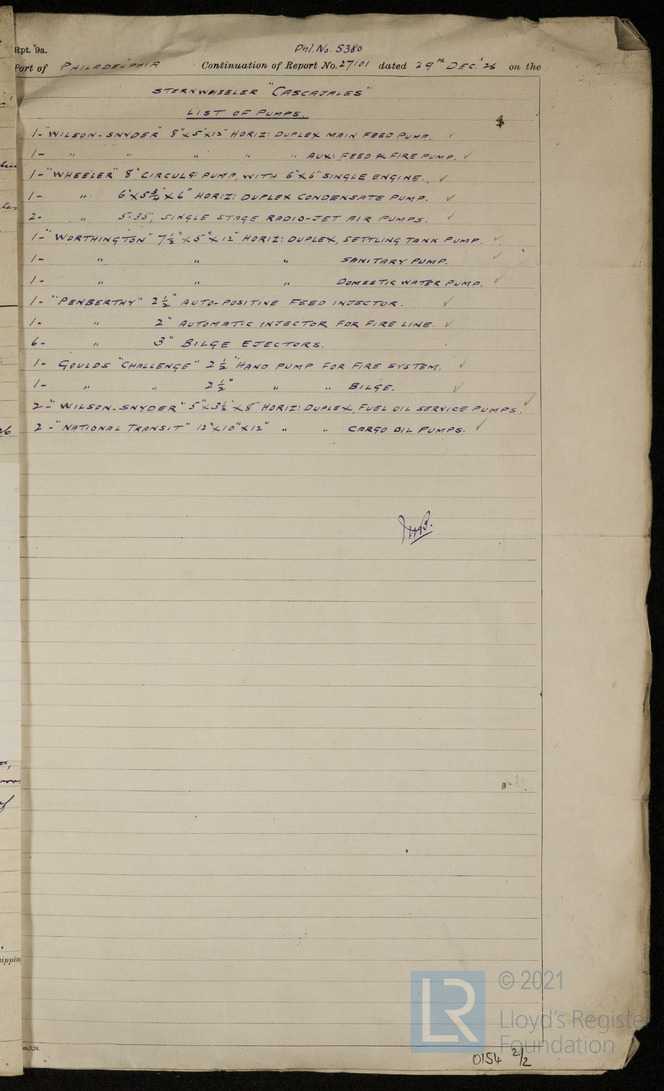 Rpt. 9a.
Phl. No. 5380
Port of PHILADELPHIA Continuation of Report No. 27101 dated 29TH DEC. '26 on the
STERNWHEELER "CASCAJALES"
LIST OF PUMPS.
1- "WILSON-SNYDER" 8"x5"x12" HORIZ: DUPLEX MAIN FEED PUMP. ✓
1- " " " " " AUX: FEED & FIRE PUMP. ✓
1- "WHEELER" 8" CIRCULG: PUMP, WITH 6"x6" SINGLE ENGINE. ✓
1- " 6"x5¾"x6" HORIZ: DUPLEX CONDENSATE PUMP. ✓
2- " 5.35, SINGLE STAGE RADIO-JET AIR PUMPS. ✓
1- "WORTHINGTON" 7½"x5"x12" HORIZ: DUPLEX, SETTLING TANK PUMP. ✓
1- " " " SANITARY PUMP. ✓
1- " " " DOMESTIC WATER PUMP. ✓
1- "PENBERTHY" 2½" AUTO-POSITIVE FEED INJECTOR. ✓
1- " 2" AUTOMATIC INJECTOR FOR FIRE LINE. ✓
6- " 3" BILGE EJECTORS.
1- GOULDS "CHALLENGE" 2½" HAND PUMP FOR FIRE SYSTEM. ✓
1- " " 2½" " " BILGE. ✓
2- "WILSON-SNYDER" 5"x3½"x5" HORIZ: DUPLEX, FUEL OIL SERVICE PUMPS. ✓
2- "NATIONAL TRANSIT" 12"x10"x12" " " CARGO OIL PUMPS. ✓
LR © 2021
Lloyd's Register
Foundation
0154 2/2